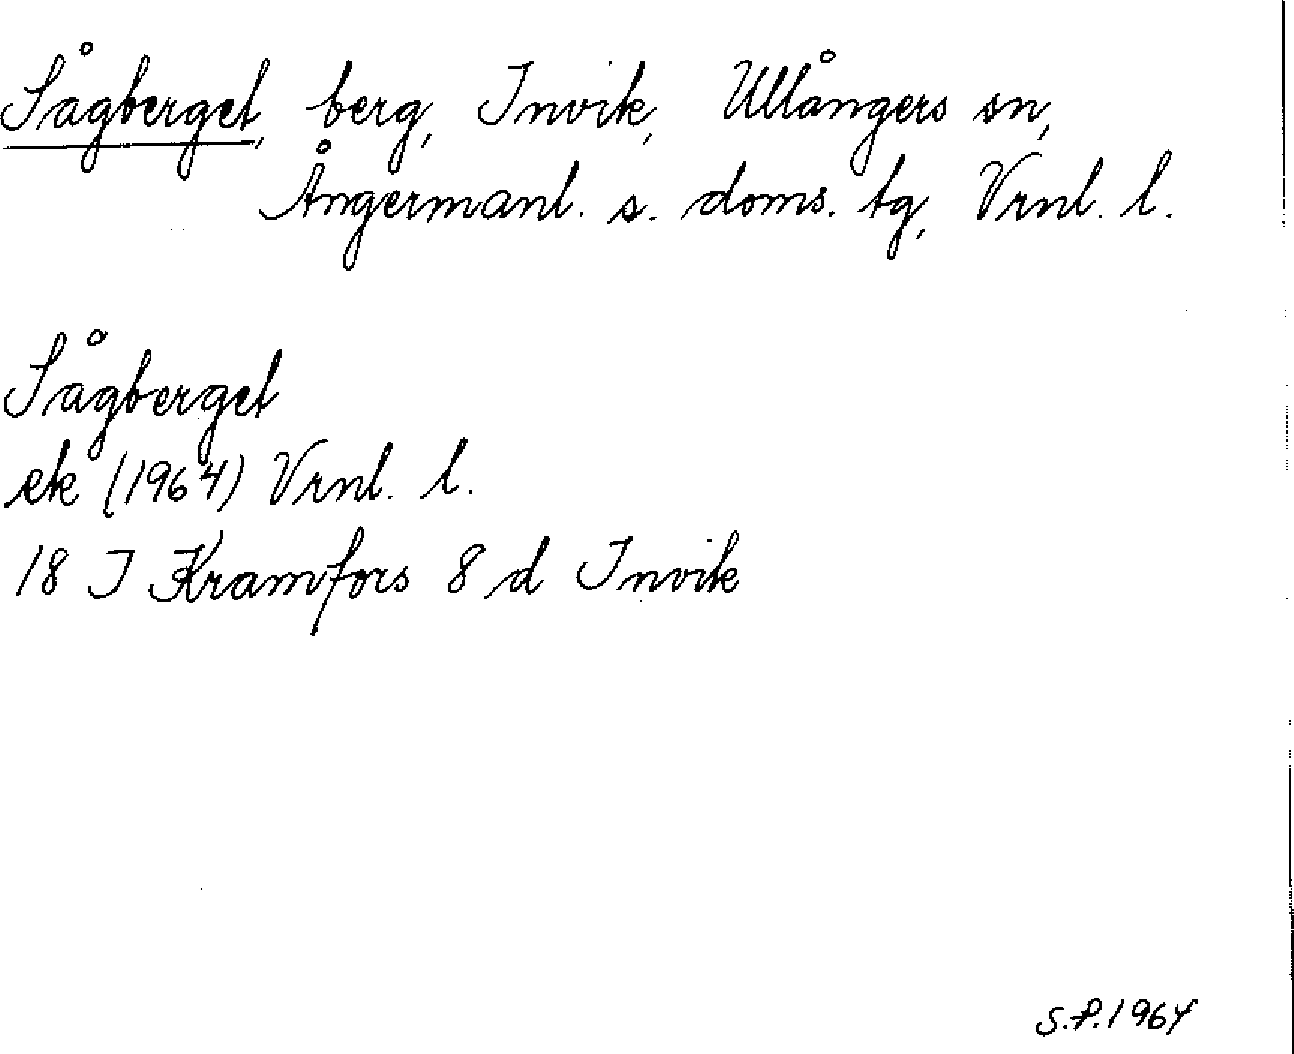 Sågberget, berg, Invik, Ullångers sn,
Ångermanl. s. doms. tg, Vrnl. l.
Sågberget
ek (1964) Vrnl. l.
18 I Kramfors 8 d Invik
S.P.1964